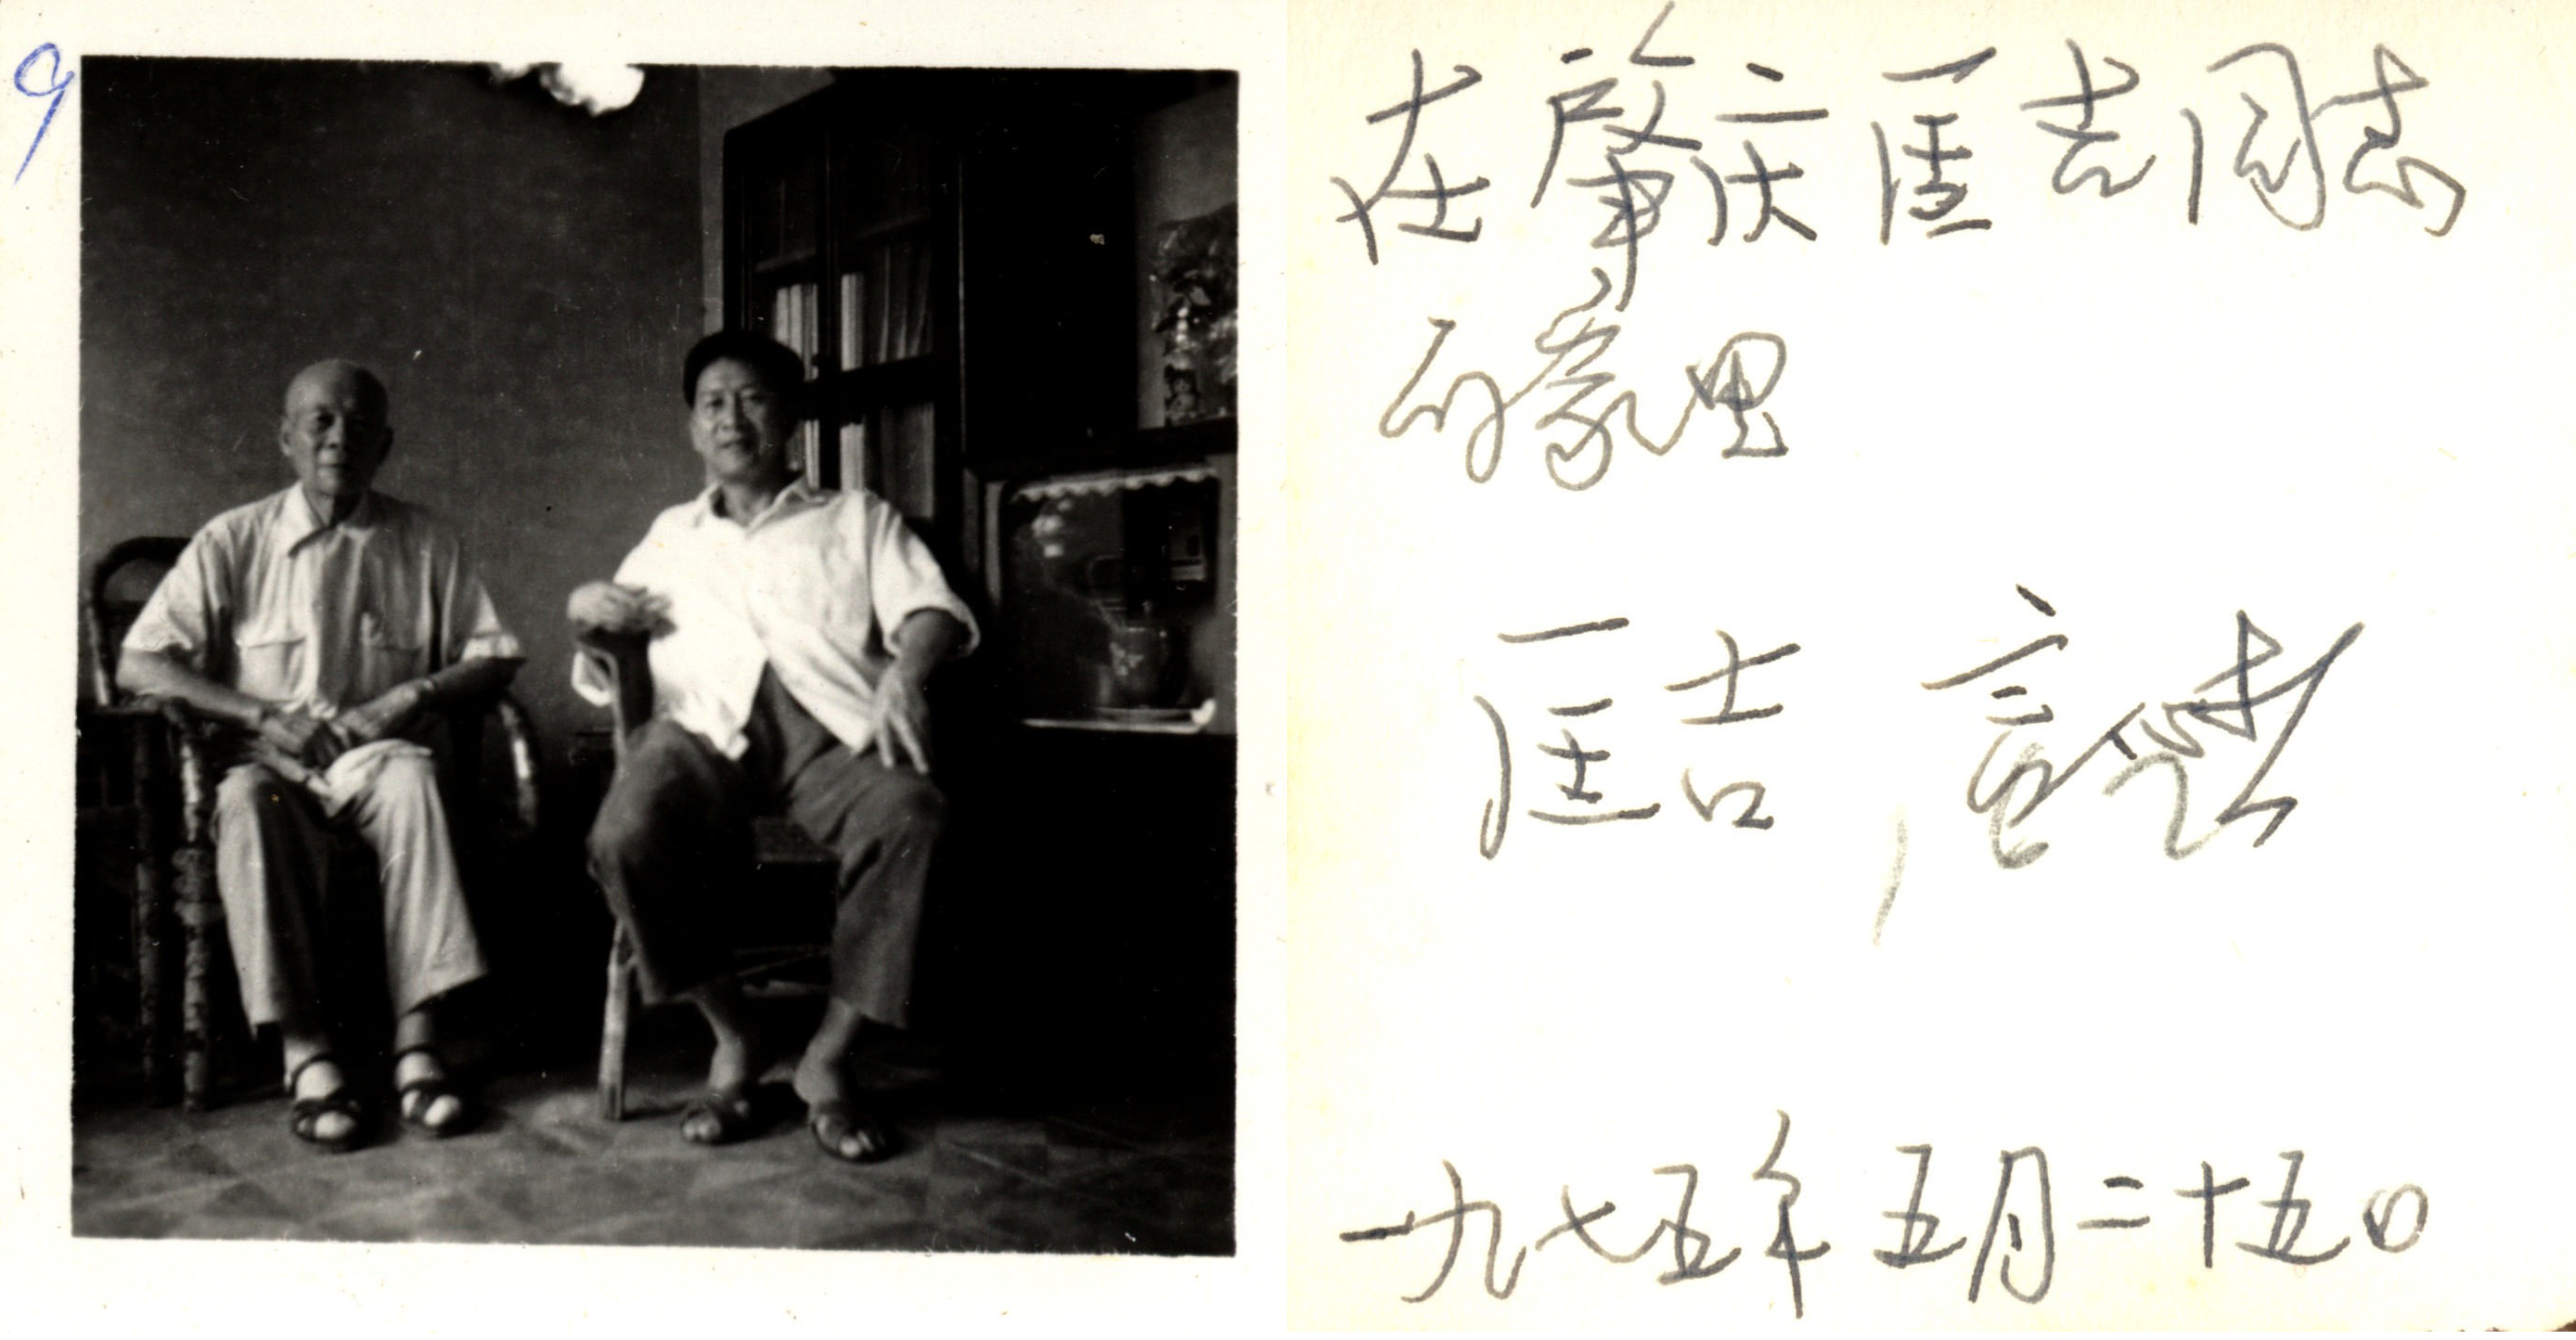 9
在肇庆匡吉同志
的家里
匡吉
一九七五年五月二十五日